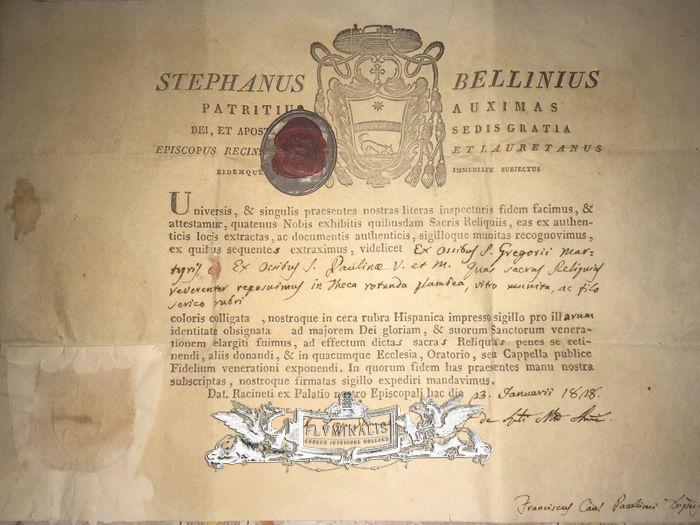 STEPHANUS BELLINIUS
PATRITIUS AUXIMAS
DEI, ET APOST SEDIS GRATIA
EPISCOPUS RECIN ET LAURETANUS
EIDEMQUE IMMEDIATE SUBJECTUS
Universis, & singulis praesentes nostras literas inspecturis fidem facimus, &
attestamur, quatenus Nobis exhibitis quibusdam Sacris Reliquiis, eas ex authen-
ticis locis extractas, ac documentis authenticis, sigilloque munitas recognovimus,
ex quibus sequentes extraximus, videlicet Ex Ossibus S. Gregorii Mar-
tyris, Ex Ossibus S. Paulinæ V. et M. Quas sacras Reliquias
reverenter reposuimus in Theca rotunda plumbea, vitro munita, ac filo
serico rubri
coloris colligata , nostroque in cera rubra Hispanica impresso sigillo pro illarum
identitate obsignata ad majorem Dei gloriam, & suorum Sanctorum venera-
tionem elargiti fuimus, ad effectum dictas sacras Reliquias penes se reti-
nendi, aliis donandi, & in quacumque Ecclesia, Oratorio, seu Cappella publice
Fidelium venerationi exponendi. In quorum fidem has praesentes manu nostra
subscriptas, nostroque firmatas sigillo expediri mandavimus.
Dat. Racineti ex Palatio nostro Episcopali hac die 23. Januarii 1828.
FLUMINALIS
Franciscus Can.